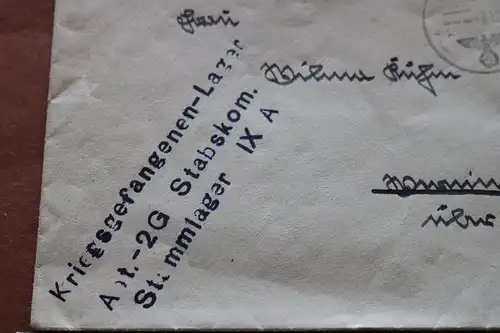 Frau
Wilma Kühn
über
Kriegsgefangenen-Lager
Abt.-2G Stabskom.
Stammlager IX A